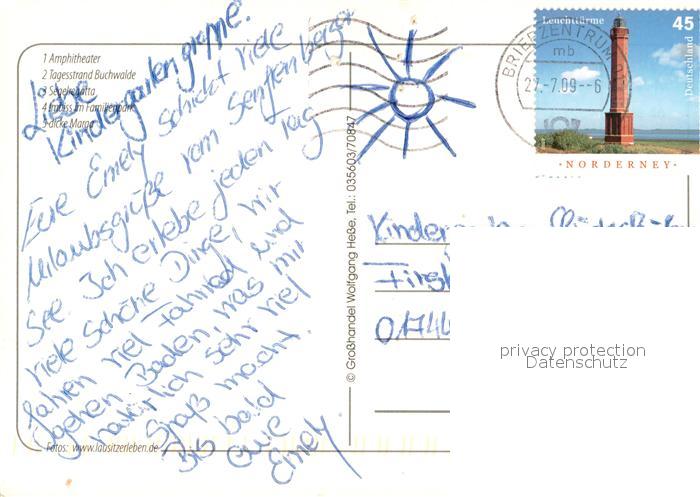 1 Amphitheater
2 Tagesstrand Buchwalde
3 Segelregatta
4 Imbiss im Familienpark
5 dicke Marga
Liebe
Kindergartengruppe.
Eure Emely schickt viele
Urlaubsgrüße vom Senftenberger
See. Ich erlebe jeden Tag
viele schöne Dinge, wir
fahren viel Fahrrad und
gehen Baden, was mir
natürlich sehr viel
Spaß macht.
Bis bald
eure
Emely.
Fotos: www.lausitzerleben.de
© Großhandel Wolfgang Heße, Tel.: 035603/70847
Leuchttürme 45
Deutschland
NORDERNEY
BRIEFZENTRUM
mb
27.-7.09--6
privacy protection
Datenschutz